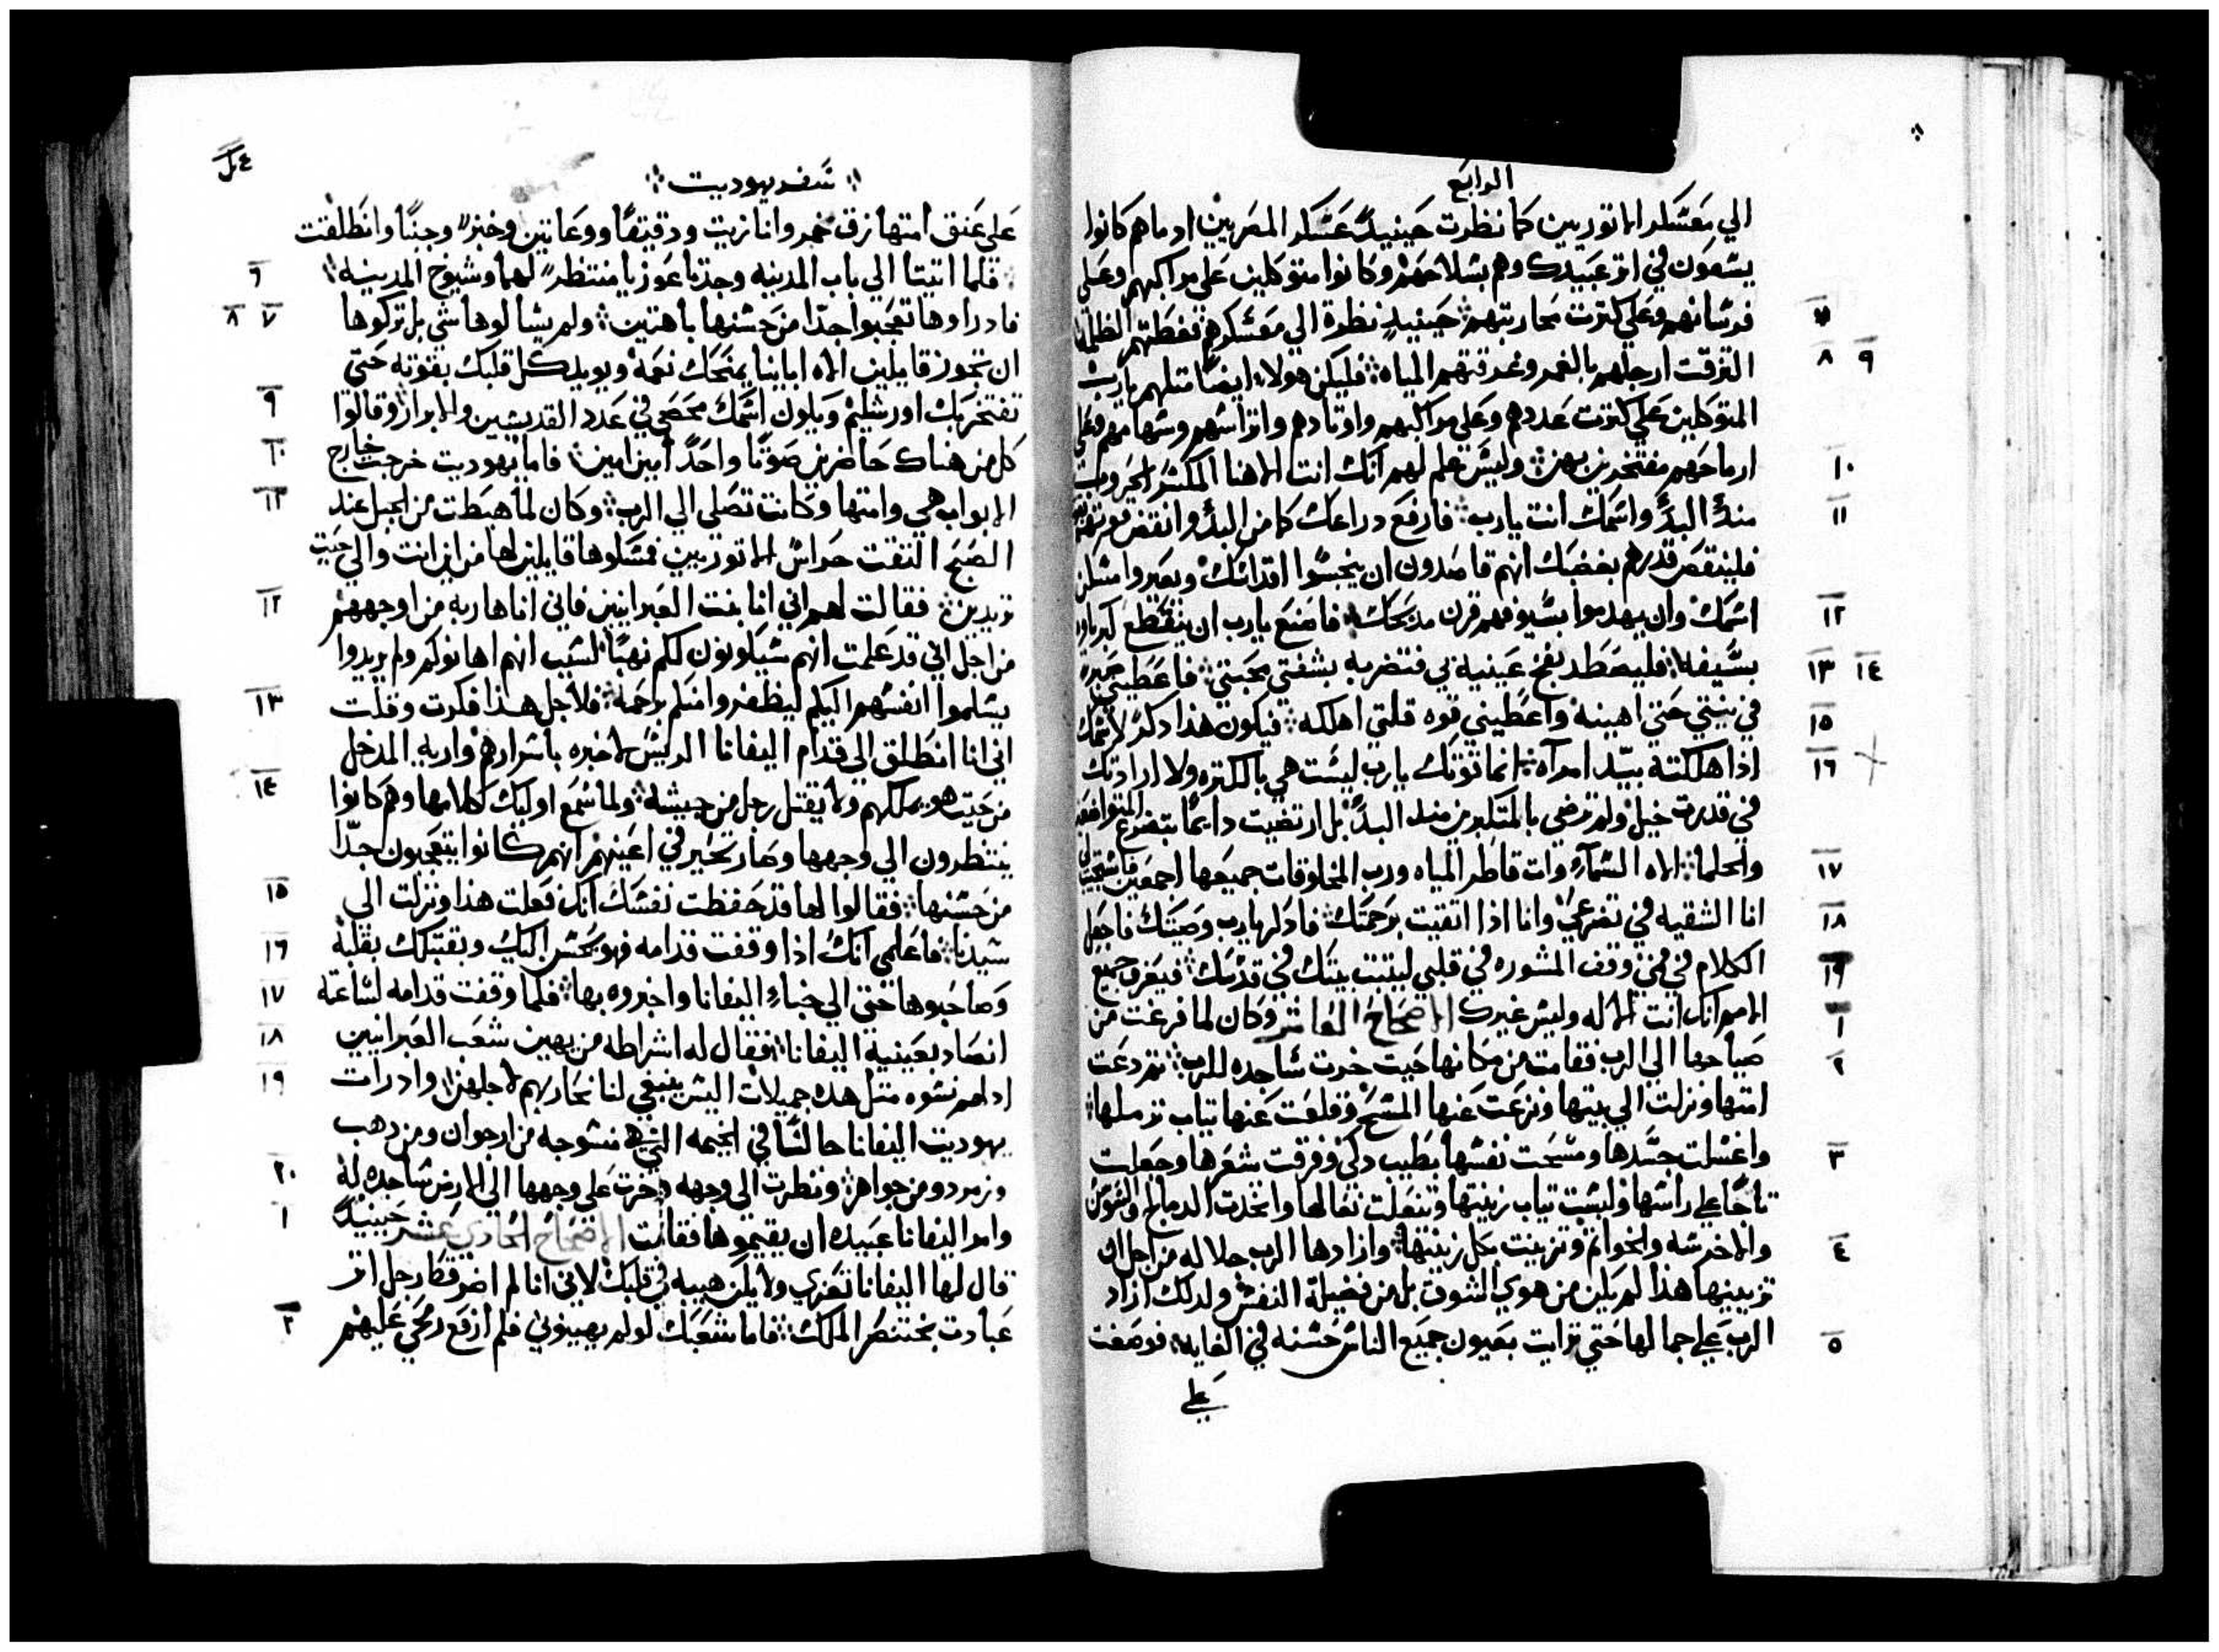 الرابع
الي معسكر الاتوريين كما نظرت حينيدٍ عسكر المصريين اد ما هم كانوا
يسعون في اتر عبيدك وهم بسلاحهم وكانوا متوكلين علي مواكبهم وعلي
٧ فرسانهم وعلي كترت محاربتهم حينيدٍ نظرة الي معسكرهم فغطتهم الظلمة
٩ ٨ التزقت ارجلهم بالغمر وغرقتهم المياه فليكن هولاء ايضًا متلهم يارب
المتوكلين علي كترت عددهم وعلي مواكبهم واوتادهم واتراسهم وسهامهم وعلي
١٠ ارماحهم مفتخرين بهن وليس علم لهم انك انت الاهنا المكسر الحروب
١١ مند البدًّ واسمك انت يارب فارفع دراعك كما من البدًّ وانتفض
فلينقص قدرهم بغضبك انهم قاصدون ان ينجسوا اقداسك ويصيروا مسكن
١٢ اسمك وان يهدموا بسيوفهم قرن مدبحك فاصنع يارب ان ينقطع كبرياوه
١٤ ١٣ بسيفه فليصطد بفخ عينيه في فتضربه بشفتي محبتي فاعطيني
١٥ في نيتي حتي اهينه واعطيني قوه قلتي اهلكه فيكون هذا دكرٌ لاسمك
١٦ اذا هلكته بيد امراه انما قوتك يارب ليست هي بالكتره ولا ارادتك
في قدرت خيل ولم ترضي بالمتكبرين مند البدًّ بل ارتضيت دايمًا بتضرع المتواضعين
١٧ والحلماء الاه السماء وات قاطر المياه ورب المخلوقات جميعها اجمعين فاستجيب لي
١٨ انا الشقيه في تضرعي وانا اذا اتقيت برحمتك فادكر يارب وصيتك فاجعل
١٩ الكلام في فمي وقف المشوره في قلبي ليتبت بيتك في قدسك فيعرف جميع
١ الامم انك انت الاله وليس غيرك الاصحاح العاشر وكان لما فرغت من
٢ صياحها الي الرب فقامت من مكانها حيت خرت ساجده للرب تم دعت
امتها ونزلت الي بيتها ونزعت عنها المسح وقلعت عنها تياب ترملها
٣ واغسلت جسدها ومسحت نفسها بطيب دكي وفرقت شعرها وجعلت
تاجًا علي راسها ولبست تياب زينتها وتنعلت نعالها واتخدت الدمالج والسوسن
٤ والاخرسه والخواتم وتزينت بكل زينتها وازادها الرب جلاله من اجل ان
تزيينها هذا لم يكن من هوي الشوق بل من فضيلة النفس ولدلك ازاد
٥ الرب علي جمالها حتي ترايت بعيون جميع الناس حسنه في الغايه فوضعت
علي
سفر يهوديت
علي عنق امتها زق خمر وانا زيت ودقيقًا ووعا تين وخبزٍ وجبنًا وانطلقت
٦ فلما اتيتا الي باب المدينه وجدتا عوزيا منتظرٍ لهما وشيوخ المدينه
٧ ٨ فاد راوها تعجبوا جدًّا من حسنها باهتين ولم يسالوها شي بل تركوها
ان تجوز قايلين الاه ابائنا يمنحك نعمة ويويد كل قلبك بقوته حتي
٩ تفتخر بك اورشليم ويكون اسمك محصي في عدد القديسين والابرار وقالوا
١٠ كل من هناك حاضرين صوتًا واحدًا امين امين فاما يهوديت خرجت خارج
١١ الابواب هي وامتها وكانت تصلي الي الرب وكان لما هبطت من الجبل عند
الصبح التقت حراس الاتوريين فمسكوها قايلين لها من اين انت والي حيت
١٢ تريدين فقالت لهم اني انا بنت العبرانيين فاني انا هاربه من اوجههم
من اجل اني قد علمت انهم سيكونون لكم نهبًا لسبب انهم اهانوكم ولم يريدوا
١٣ يسلموا انفسهم اليكم ليظفروا منكم برحمة فلاجل هذا فكرت وقلت
اني انا انطلق الي قدام اليفانا الريس لاخبره باسرارهم واريه المدخل
١٤ من حيت هو يملكهم ولا يقتل رجل من جيشه ولما سمع اوليك كلامها وهم كانوا
ينتظرون الي وجهها وصار تحير في اعينهم انهم كانوا يتعجبون جدًّا
١٥ من حسنها فقالوا لها قد حفظت نفسك انك فعلت هذا ونزلت الي
١٦ سيدنا فاعلمي انك اذا وقفت قدامه فهو يحسن اليك وبقتلك بقلبه
١٧ وصاحبوها حتي الي خباء اليفانا واخبروه بها فلما وقفت قدامه لساعته
١٨ انصاد بعينيه اليفانا فقال له اشراطه من يهين شعب العبرانيين
١٩ اد لهم نسوه متل هده جميلات اليس ينبغي لنا نحاربهم لاجلهن واد رات
يهوديت اليفانا جالسًا في الخيمه التي هي منسوجه من ارجوان ومن دهب
٢٠ وزمرد ومن جواهر ونظرت الي وجهه وخرت علي وجهها الي الارض ساجده له
١ وامر اليفانا عبيده ان يقيموها فقامت الاصحاح الحادي عشر حينيدٍ
قال لها اليفانا تعزي ولا يكن هيبه في قلبك لاني انا لم اضر قط رجل اتر
٢ عبادت بختنصر الملك فاما شعبك لو لم يهينوني فلم ارفع رمحي عليهم